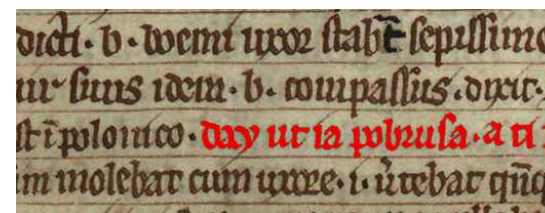 dicti · b · boemi uxor stabt sepissime
vir suus idem · b · compassus · dixit ·
st i polonico · day ut ia pobrusa · a ti
m molebat cum uxore · i · vtebat qnq